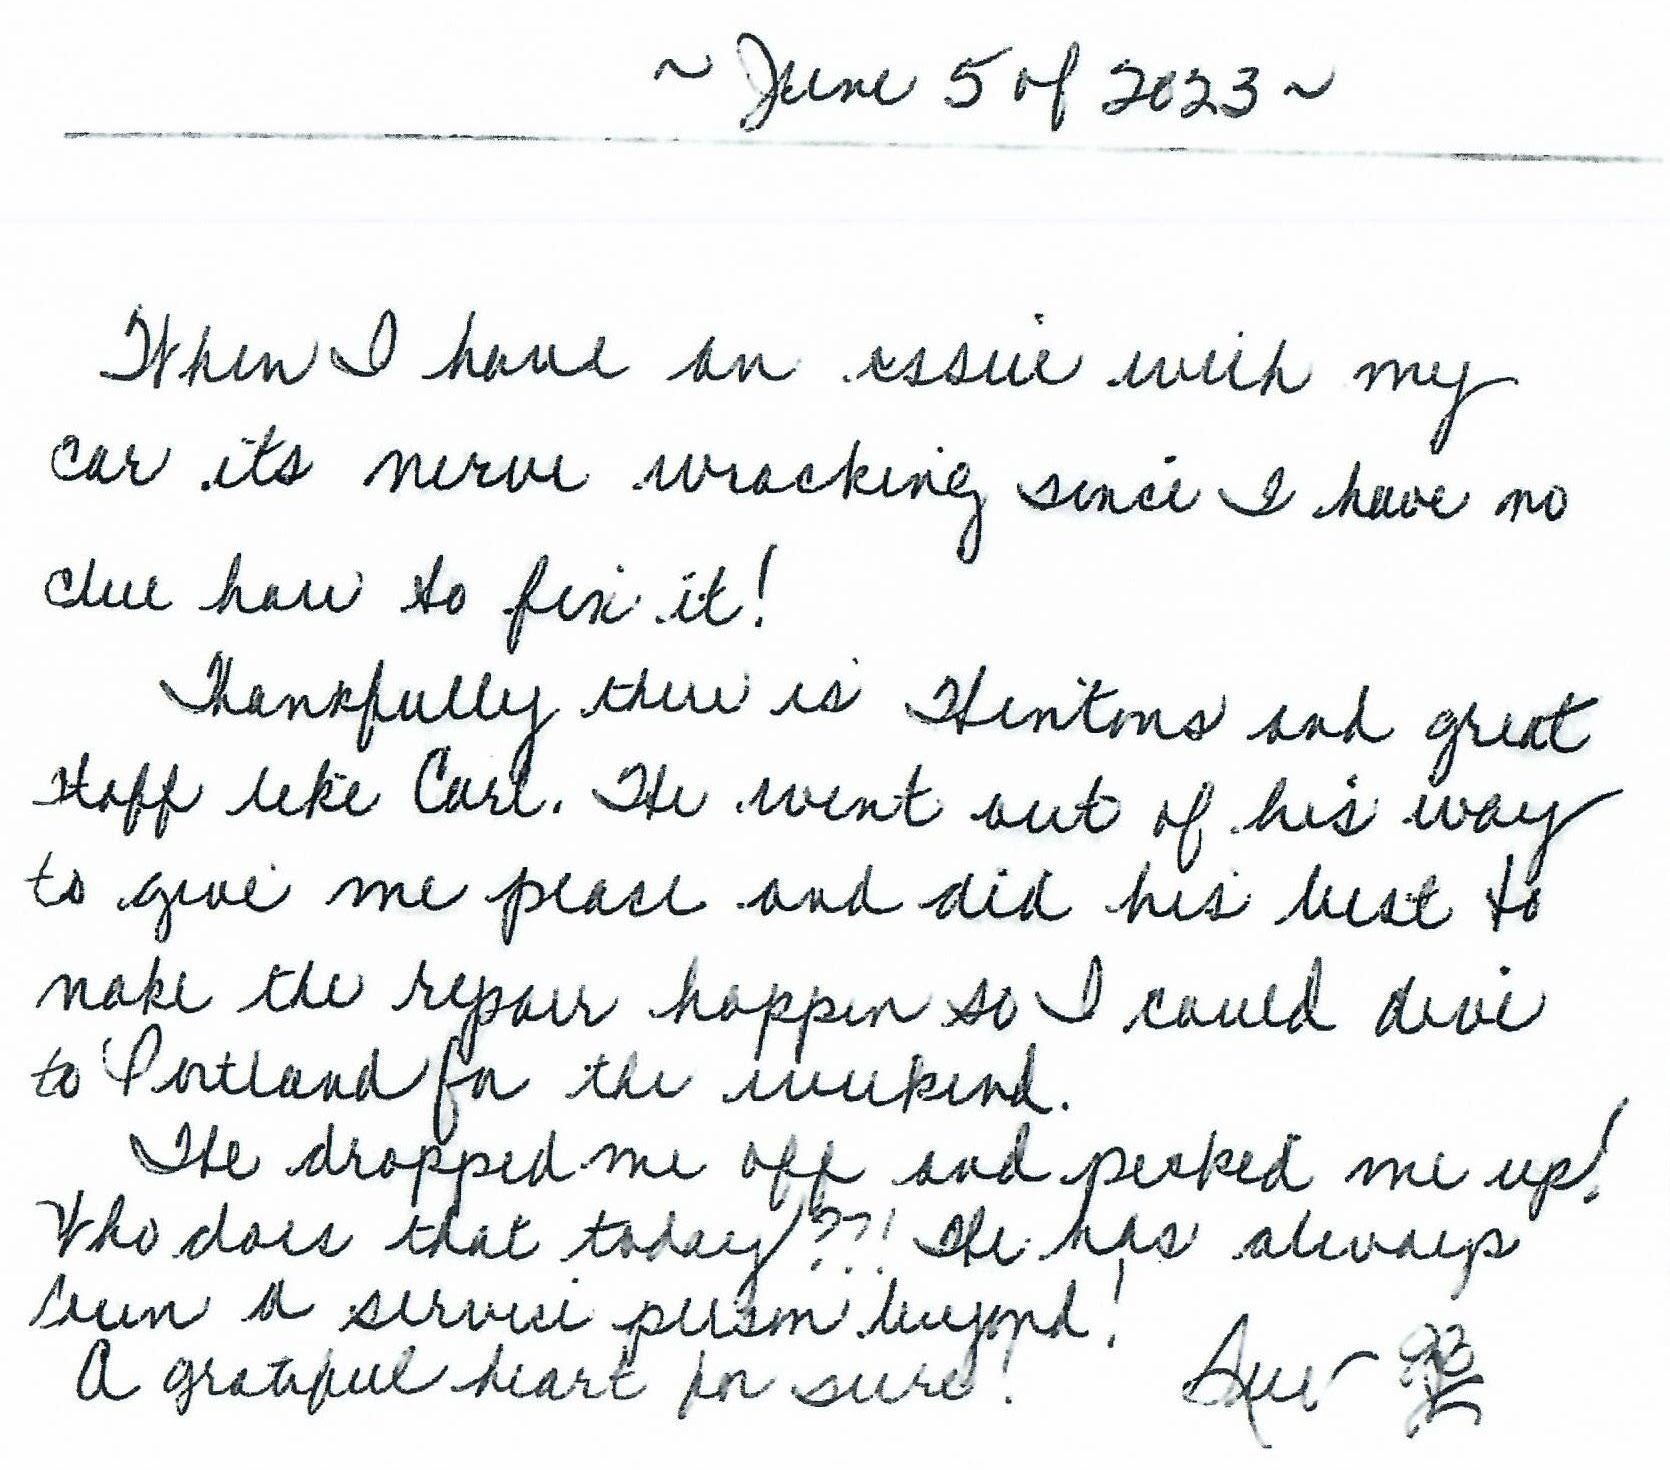 ~ June 5 of 2023 ~
When I have an issue with my
car its nerve wracking since I have no
clue how to fix it!
Thankfully there is Hintons and great
staff like Carl. He went out of his way
to give me peace and did his best to
make the repair happen so I could drive
to Portland for the weekend.
He dropped me off and picked me up!
Who does that today??! He has always
been a service person beyond!
A grateful heart for sure! Sue